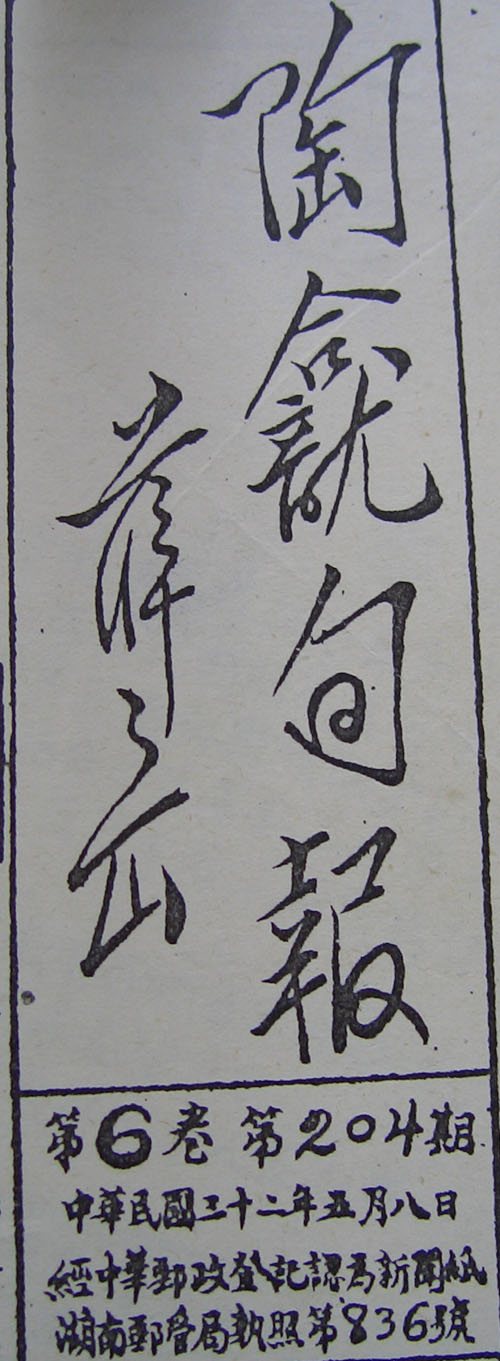 陶龕旬報
薛岳
第6卷 第204期
中華民國三十二年五月八日
經中華郵政登記認為新聞紙
湖南郵管局執照第836號